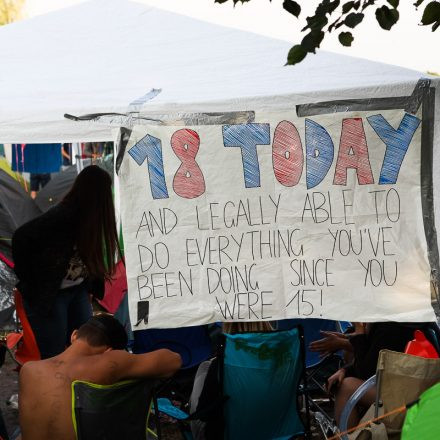 18 TODAY
AND LEGALLY ABLE TO
DO EVERYTHING YOU'VE
BEEN DOING SINCE YOU
WERE 15!